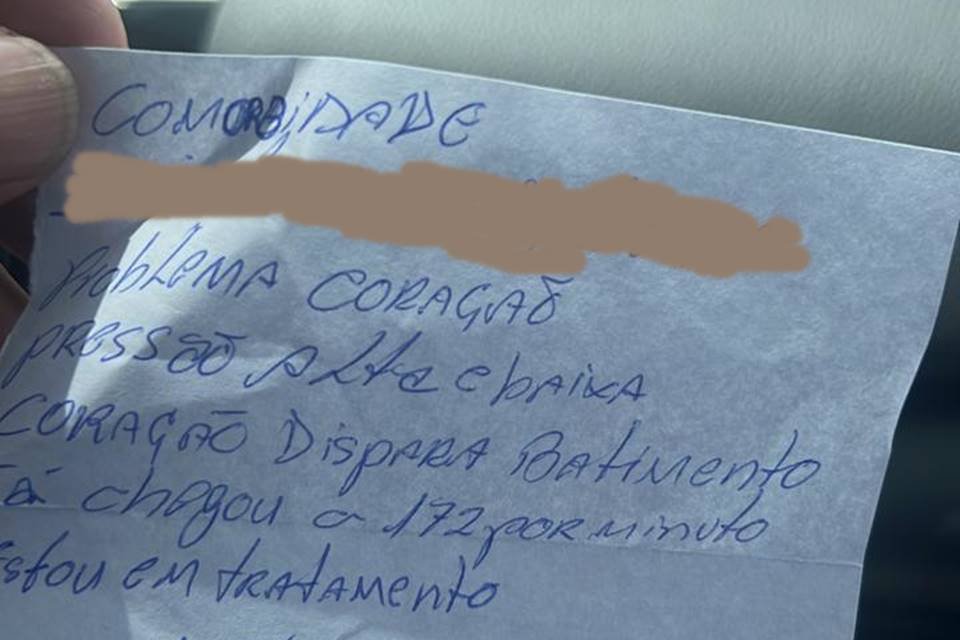 COMORBIDADE
PROBLEMA CORAÇÃO
PRESSÃO ALTA E BAIXA
CORAÇÃO DISPARA BATIMENTO
chegou a 172 POR MINUTO
Estou EM TRATAMENTO